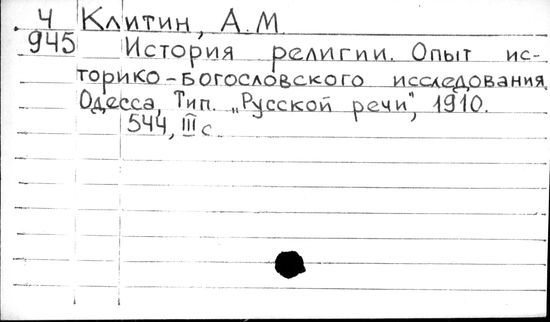 Ч Клитин, А.М
945 История религии. Опыт ис-
торико-богословского исследования.
Одесса, Тип. „Русской речи", 1910.
544, III с.